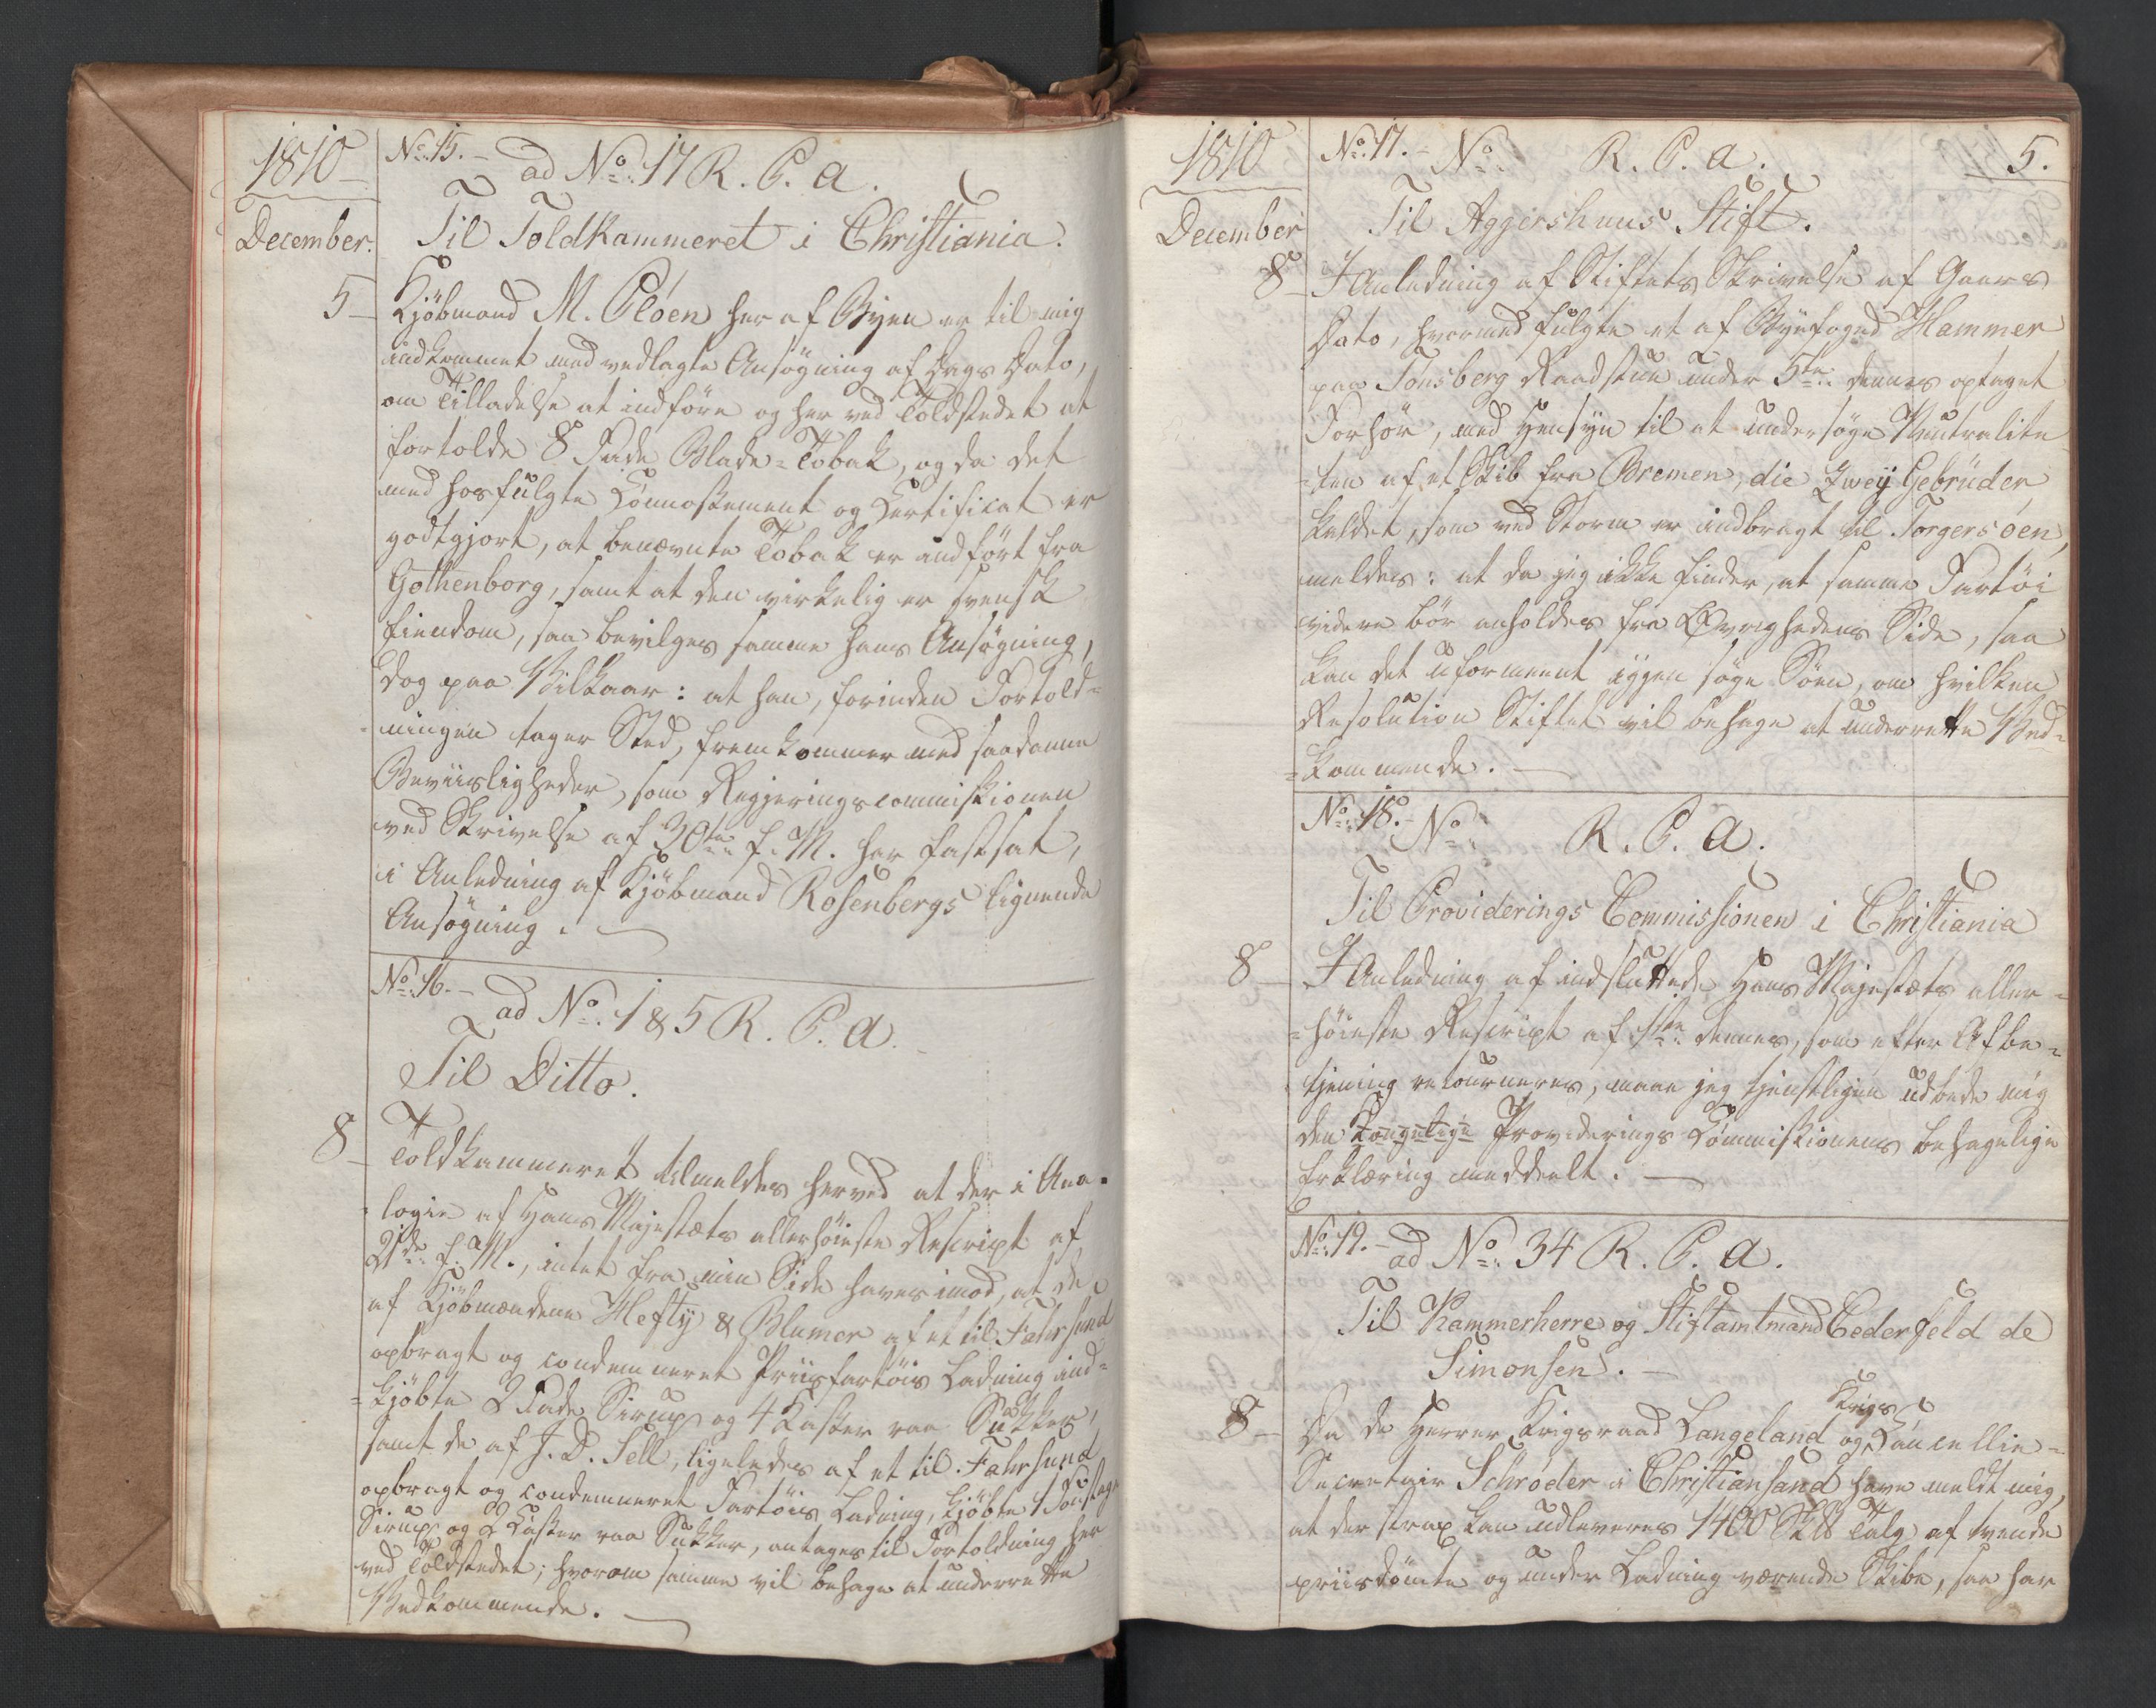 1810
December.
No: 15. -
ad No: 17 R. P. A.
Til Toldkammeret i Christiania.
5 - Kjöbmand M. Plöen her af Byen er til mig
indkommet med vedlagte Ansögning af Dags Dato,
om Tilladelse at indföre og her ved Toldstedet at
fortolde 8 Fade Blade-Tobak, og da det
med hosfulgte Connossement og Certificat er
godtgjort, at benævnte Tobak er indfört fra
Gothenborg, samt at den virkelig er svensk
Eiendom, saa bevilges samme hans Ansögning,
dog paa Vilkaar: at han, forinden Fortold=
ningen tager Sted, fremkommer med saadanne
Beviisligheder, som Regjeringscommissionen
ved Skrivelse af 30te f. M. har fastsat,
i Anledning af Kjöbmand Rosenbergs lignende
Ansögning. -
No: 16. -
ad No: 1 & 5 R. P. A.
Til Ditto.
8 - Toldkammeret tilmeldes herved at der i Ana=
logie af Hans Majestæts allerhöieste Rescript af
21de f. M., intet fra min Side haves imod, at de
af Kjöbmændene Hefty & Blumer af et til Fahrsund
opbragt og condemneret Priisfartöis Ladning ind=
=kjöbte 2 Fade Sirup og 4 Kasser raa Sukker,
samt de af J. D. Sell, ligeledes af et til Fahrsund
opbragt og condemneret Fartöis Ladning, kjöbte 1
Sirup og 2 Kasser raa Sukker, antages til Fortoldning her
ved Toldstedet; hvorom samme vil behage at underrette
Vedkommende. -
1810
December
5.
No: 17. -
No: R. P. A.
Til Aggershuus Stift.
8 - I Anledning af Stiftets Skrivelse af Gaars
Dato, hvormed fulgte et af Byefoged Hammer
paa Tonsberg Raadstue under 5te dennes optaget
Forhör, med Hensyn til at undersöge Neutralite
=ten af et Skib fra Bremen, die Zweij Gebrüder
kaldet, som ved Storm er indbragt til Torgersöen,
meldes: at da jeg ikke finder, at samme Fartöi
videre bör anholdes fra Övrighedens Side, saa
kan det uformeent igjen söge Söen, om hvilken
Resolution Stiftet vil behage at underrette Ved=
=kommende. -
No: 18. -
No: R. P. A.
Til Providerings Commissionen i Christiania
8 - I Anledning af indsluttede Hans Majestæts aller=
=höieste Rescript af 1ste dennes, som efter Afbe=
tjening retourneres, maae jeg tjenstligen udbede mig
den Kongelige Providerings Commissionens behagelige
Erklæring meddeelt. -
No: 19. -
ad No: 34 R. P. A.
Til Kammerherre og Stiftamtmand Cederfeld de
Simonsen. -
8 - Da de Herrer Krigsraad Langeland og Krigs Cancellie=
Secretair Schröder i Christiansand have meldt mig,
at der strax kan udleveres 1400 Sk℔ Talg af tvende
priisdömte og under Ladning værende Skibe, saa har